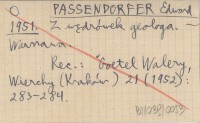 PASSENDORFER Edward
1951. Z wędrówek geologa. –
Warszawa.
Rec.: Goetel Walery,
Wierchy (Kraków) 21 (1952):
283-284.